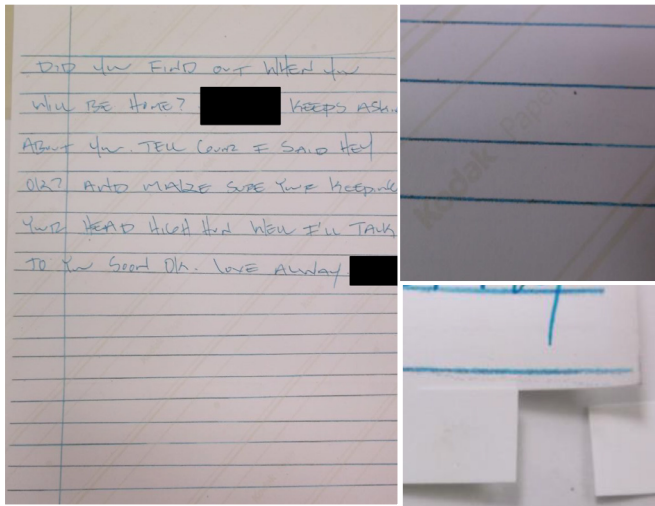 DID You FIND OUT WHEN You
Will BE HOME? KEEPS ASKIN
ABOUT You. TELL COURT I SAID HEY
OK? AND MAKE SURE YOUR KEEPING
YOUR HEAD HIGH HUN WELL I'LL TALK
TO You SOON OK. LOVE ALWAY
Kodak Paper